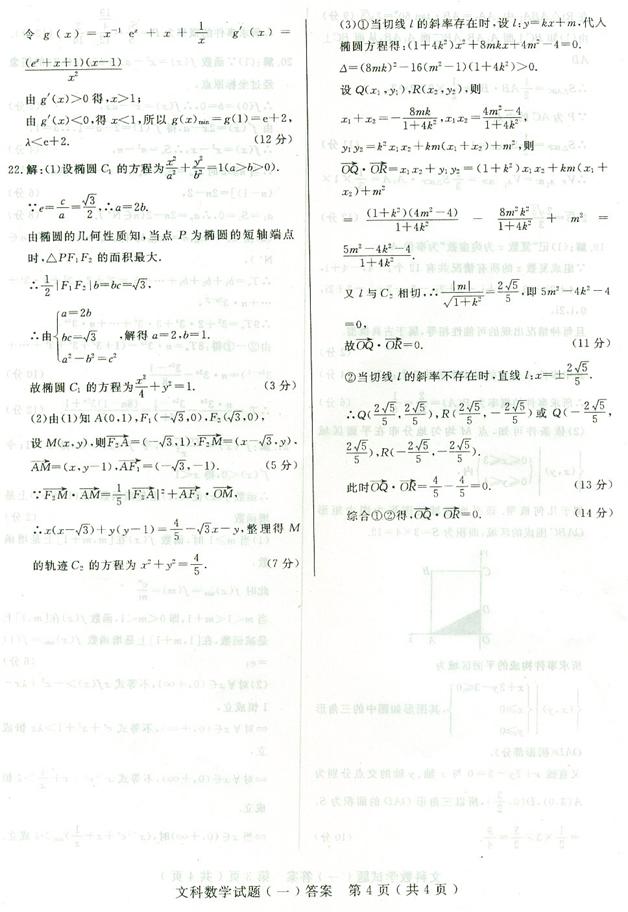 令 g(x)=x⁻¹eˣ+x+1/x g′(x)=
(eˣ+x+1)(x-1)/x²
由 g′(x)>0 得,x>1;
由 g′(x)<0,得 x<1,所以 g(x)min=g(1)=e+2,
λ<e+2. (12 分)
22.解:(1)设椭圆 C₁ 的方程为x²/a²+y²/b²=1(a>b>0).
∵e=c/a=√3/2.∴a=2b.
由椭圆的几何性质知,当点 P 为椭圆的短轴端点
时,△PF₁F₂ 的面积最大.
∴1/2|F₁F₂|b=bc=√3,
∴由{a=2b
bc=√3 ,解得 a=2,b=1.
a²-b²=c²
故椭圆 C₁ 的方程为x²/4+y²=1. (3 分)
(2)由(1)知 A(0,1),F₁(-√3,0),F₂(√3,0),
设 M(x,y),则F₂A=(-√3,1),F₂M=(x-√3,y),
AM=(x,y-1),AF₁=(-√3,-1). (5 分)
∵F₂M·AM=1/5|F₂A|²+AF₁·OM,
∴x(x-√3)+y(y-1)=4/5-√3x-y,整理得 M
的轨迹 C₂ 的方程为 x²+y²=4/5. (7 分)
(3)①当切线 l 的斜率存在时,设 l:y=kx+m,代入
椭圆方程得:(1+4k²)x²+8mkx+4m²-4=0.
Δ=(8mk)²-16(m²-1)(1+4k²)>0.
设 Q(x₁,y₁),R(x₂,y₂),则
x₁+x₂=-8mk/1+4k²,x₁x₂=4m²-4/1+4k²,
y₁y₂=k²x₁x₂+km(x₁+x₂)+m²,则
OQ·OR=x₁x₂+y₁y₂=(1+k²)x₁x₂+km(x₁+
x₂)+m²
=(1+k²)(4m²-4)/1+4k² - 8m²k²/1+4k² + m² =
5m²-4k²-4/1+4k².
又 l 与 C₂ 相切,∴|m|/√1+k²=2√5/5,即 5m²-4k²-4
=0,
故OQ·OR=0. (11 分)
②当切线 l 的斜率不存在时,直线 l:x=±2√5/5.
∴Q(2√5/5,2√5/5),R(2√5/5,-2√5/5)或 Q(-2√5/5,
2√5/5),R(-2√5/5,-2√5/5).
此时OQ·OR=4/5-4/5=0. (13 分)
综合①②得,OQ·OR=0. (14 分)
文科数学试题(一)答案 第4页(共4页)